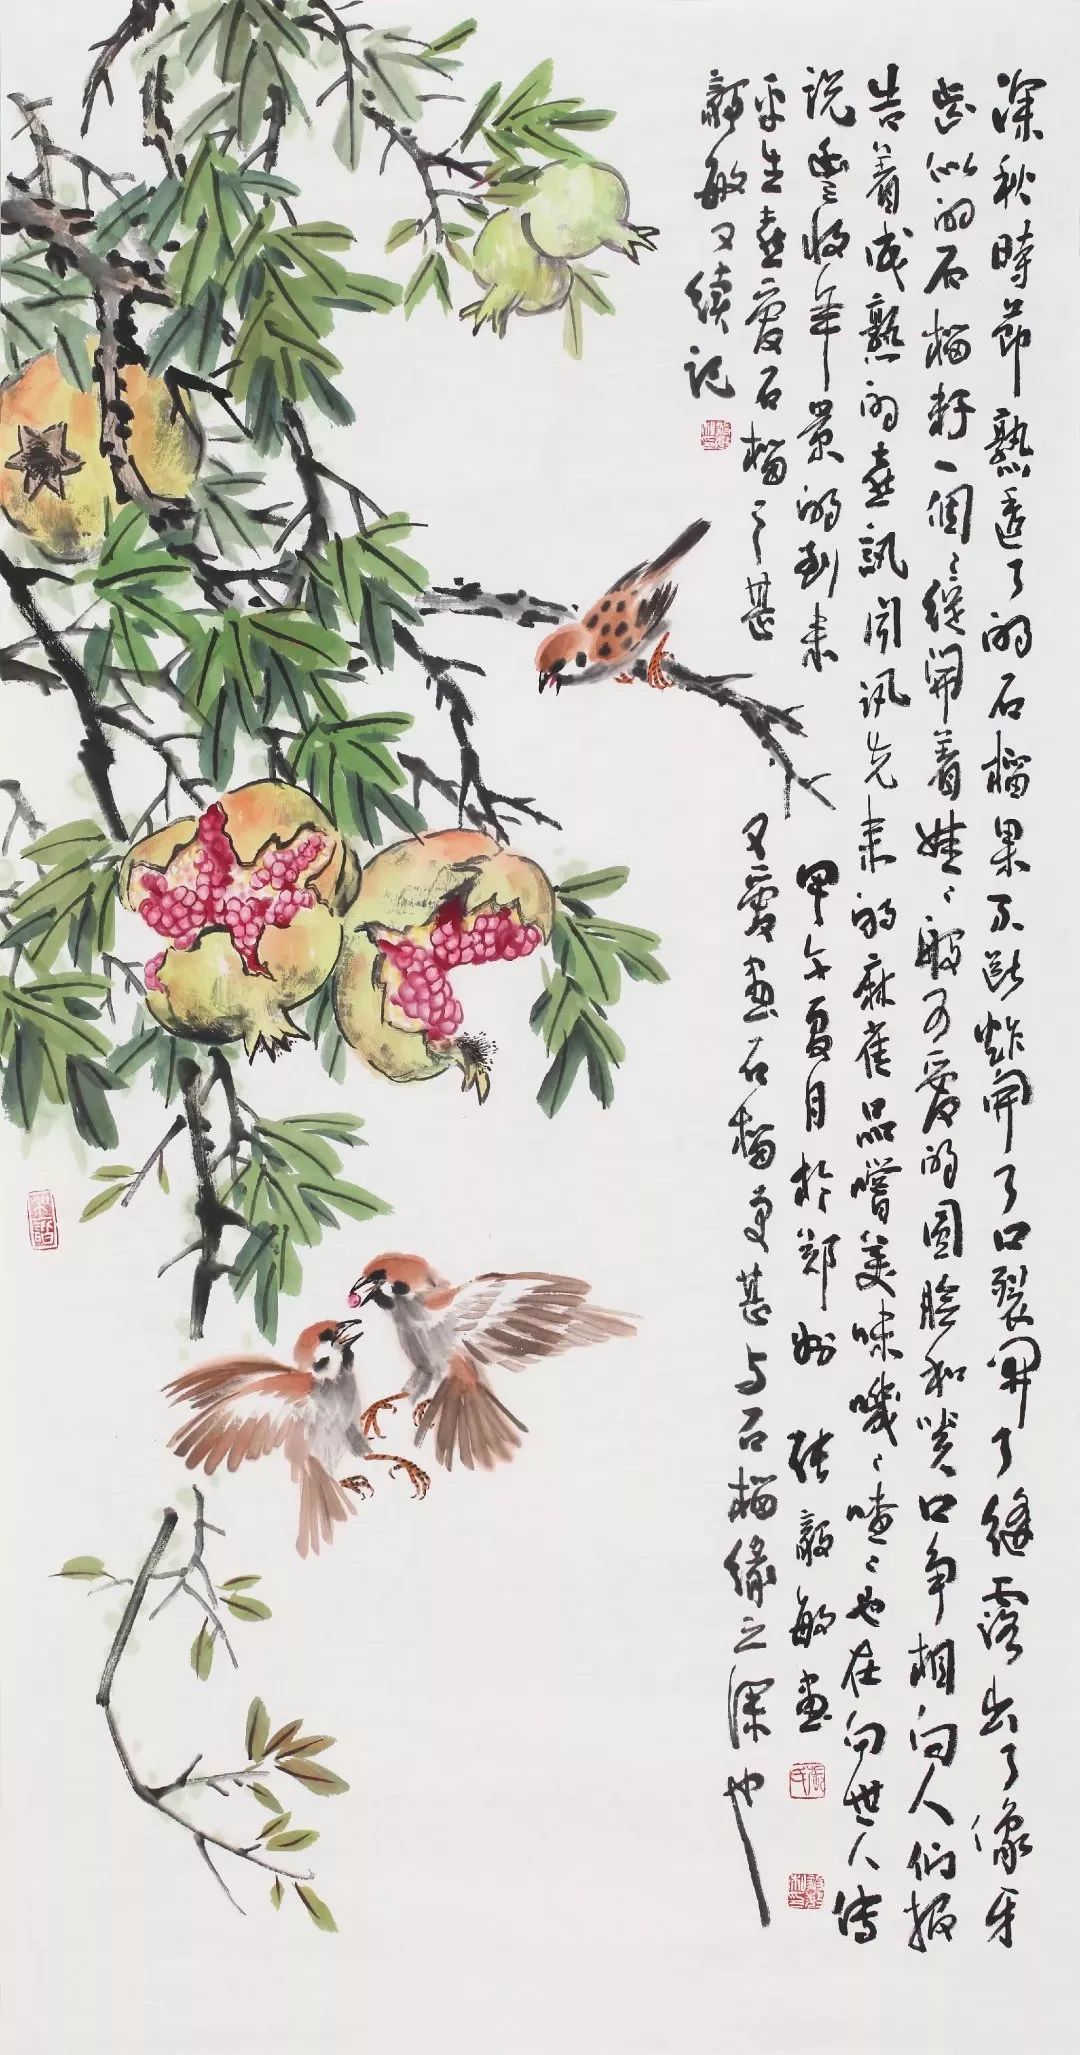 深秋時節熟透了的石榴果不断炸開了口裂開了缝露出了像牙
齿似的石榴籽一個々绽開着娃々般可爱的圆脸和笑口争相向人们报
告着成熟的喜訊闻讯先来的麻雀品嚐美味嘰々喳々也在向世人传
说豐收年景的到来 甲午夏月於郑州 张毅敏画
平生喜爱石榴之甚 又爱画石榴更甚与石榴缘之深也
毅敏又續记